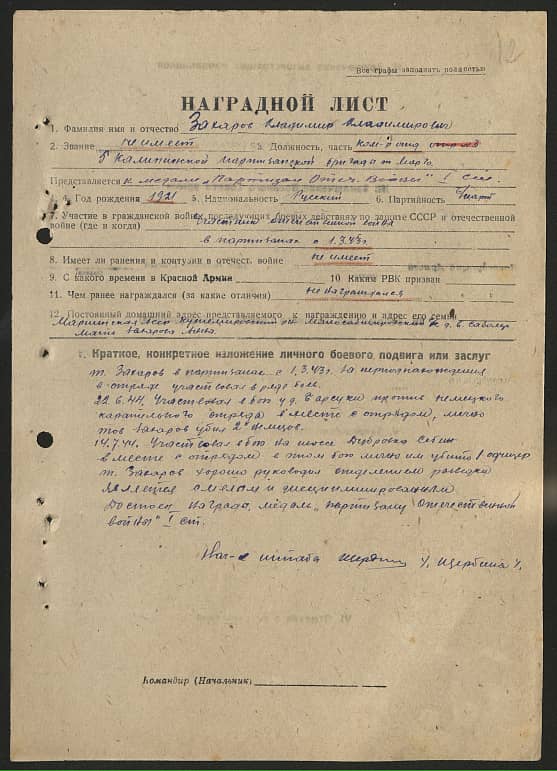 12
Все графы заполнять полностью
НАГРАДНОЙ ЛИСТ
1. Фамилия имя и отчество Захаров Владимир Владимирович
2. Звание не имеет 3. Должность, часть
5 Калининской партизанской бригады
Представляется к медали „Партизан Отеч. Войны" I ст.
4. Год рождения 1921 5. Национальность Русский 6. Партийность
7. Участие в гражданской войне, последующих боевых действиях по защите СССР и отечественной
войне (где и когда) Участник отечественной войны
в партизанах с 1.3.43 г.
8. Имеет ли ранения и контузии в отечеств. войне не имеет
9. С какого времени в Красной Армии 10 Каким РВК призван
11. Чем ранее награждался (за какие отличия) не награждался
12. Постоянный домашний адрес представляемого к награждению и адрес его семьи
Марийская АССР
мать Захарова
1. Краткое, конкретное изложение личного боевого подвига или заслуг
т. Захаров в партизанах с 1.3.43 г. За период нахождения
в отряде участвовал в ряде боев.
22.6.44. Участвовал в бою у д. Барсуки против немецкого
карательного отряда вместе с отрядом, лично
тов Захаров убил 2х немцов.
14.7.44. Участвовал в бою на шоссе Дубровка Себеж
вместе с отрядом в этом бою лично им убит 1 офицер
т. Захаров хорошо руководил отделением разведки
является смелым и дисциплинированным
Достоен награды, медаль „партизану Отечественной
войны" I ст.
Нач-к штаба Щербина
Командир (Начальник)